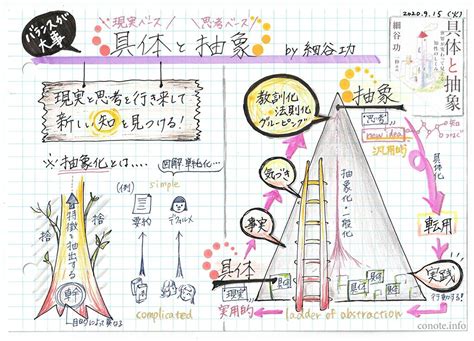 バランスが
大事
現実ベース
思考ベース
具体と抽象
by 細谷功
2020.9.15 (火)
具体と抽象
細谷 功
現実と思考を行き来して
新しい知を見つける!
抽象化とは・・・・
図解・単純化…
特徴を抽出する
捨
捨
捨
捨
幹
目的によって異なる
(例)
simple
要約
デフォルメ
complicated
教訓化
法則化
グルーピング
抽象
"思考"
"new idea"
汎用的
気づき
事実
抽象化・一般化
転用
実践
行動する!
具体
現実
実用的
具体
具体
具体
ladder of abstraction
conote.info